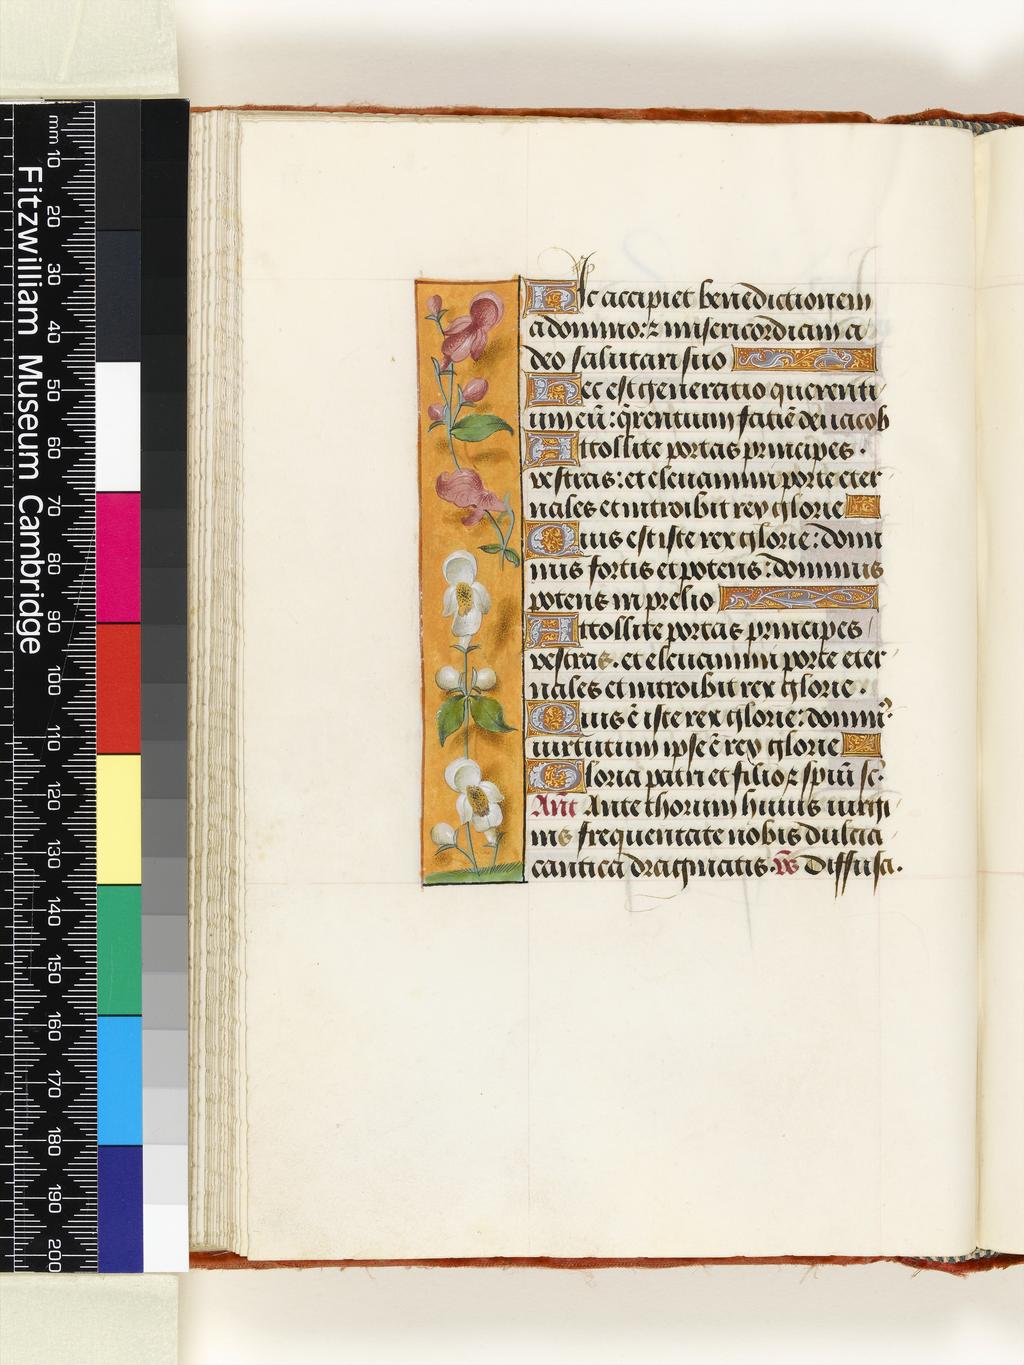 Fitzwilliam Museum Cambridge
mm 10 20 30 40 50 60 70 80 90 100 110 120 130 140 150 160 170 180 190 200
Hic accipiet benedictionem
a domino: ⁊ misericordiam a
deo salutari suo
Hec est generatio querenti
um eū: q̄rentium faciē dei iacob
Attollite portas principes ·
vestras: et eleuamini porte eter
nales et introibit rex glorie
Quis est iste rex glorie: domi
nus fortis et potens: dominus
potens in prelio
Attollite portas principes
vestras. et eleuamini porte eter
nales et introibit rex glorie ·
Quis ē iste rex glorie: domin᷒
uirtutum ipse ē rex glorie
Gloria patri et filio ⁊ spiū sc̄·
Ant̄ Ante thorum huius uirgi
nis frequentate nobis dulcia
cantica dragmatis · v̄s Diffusa ·